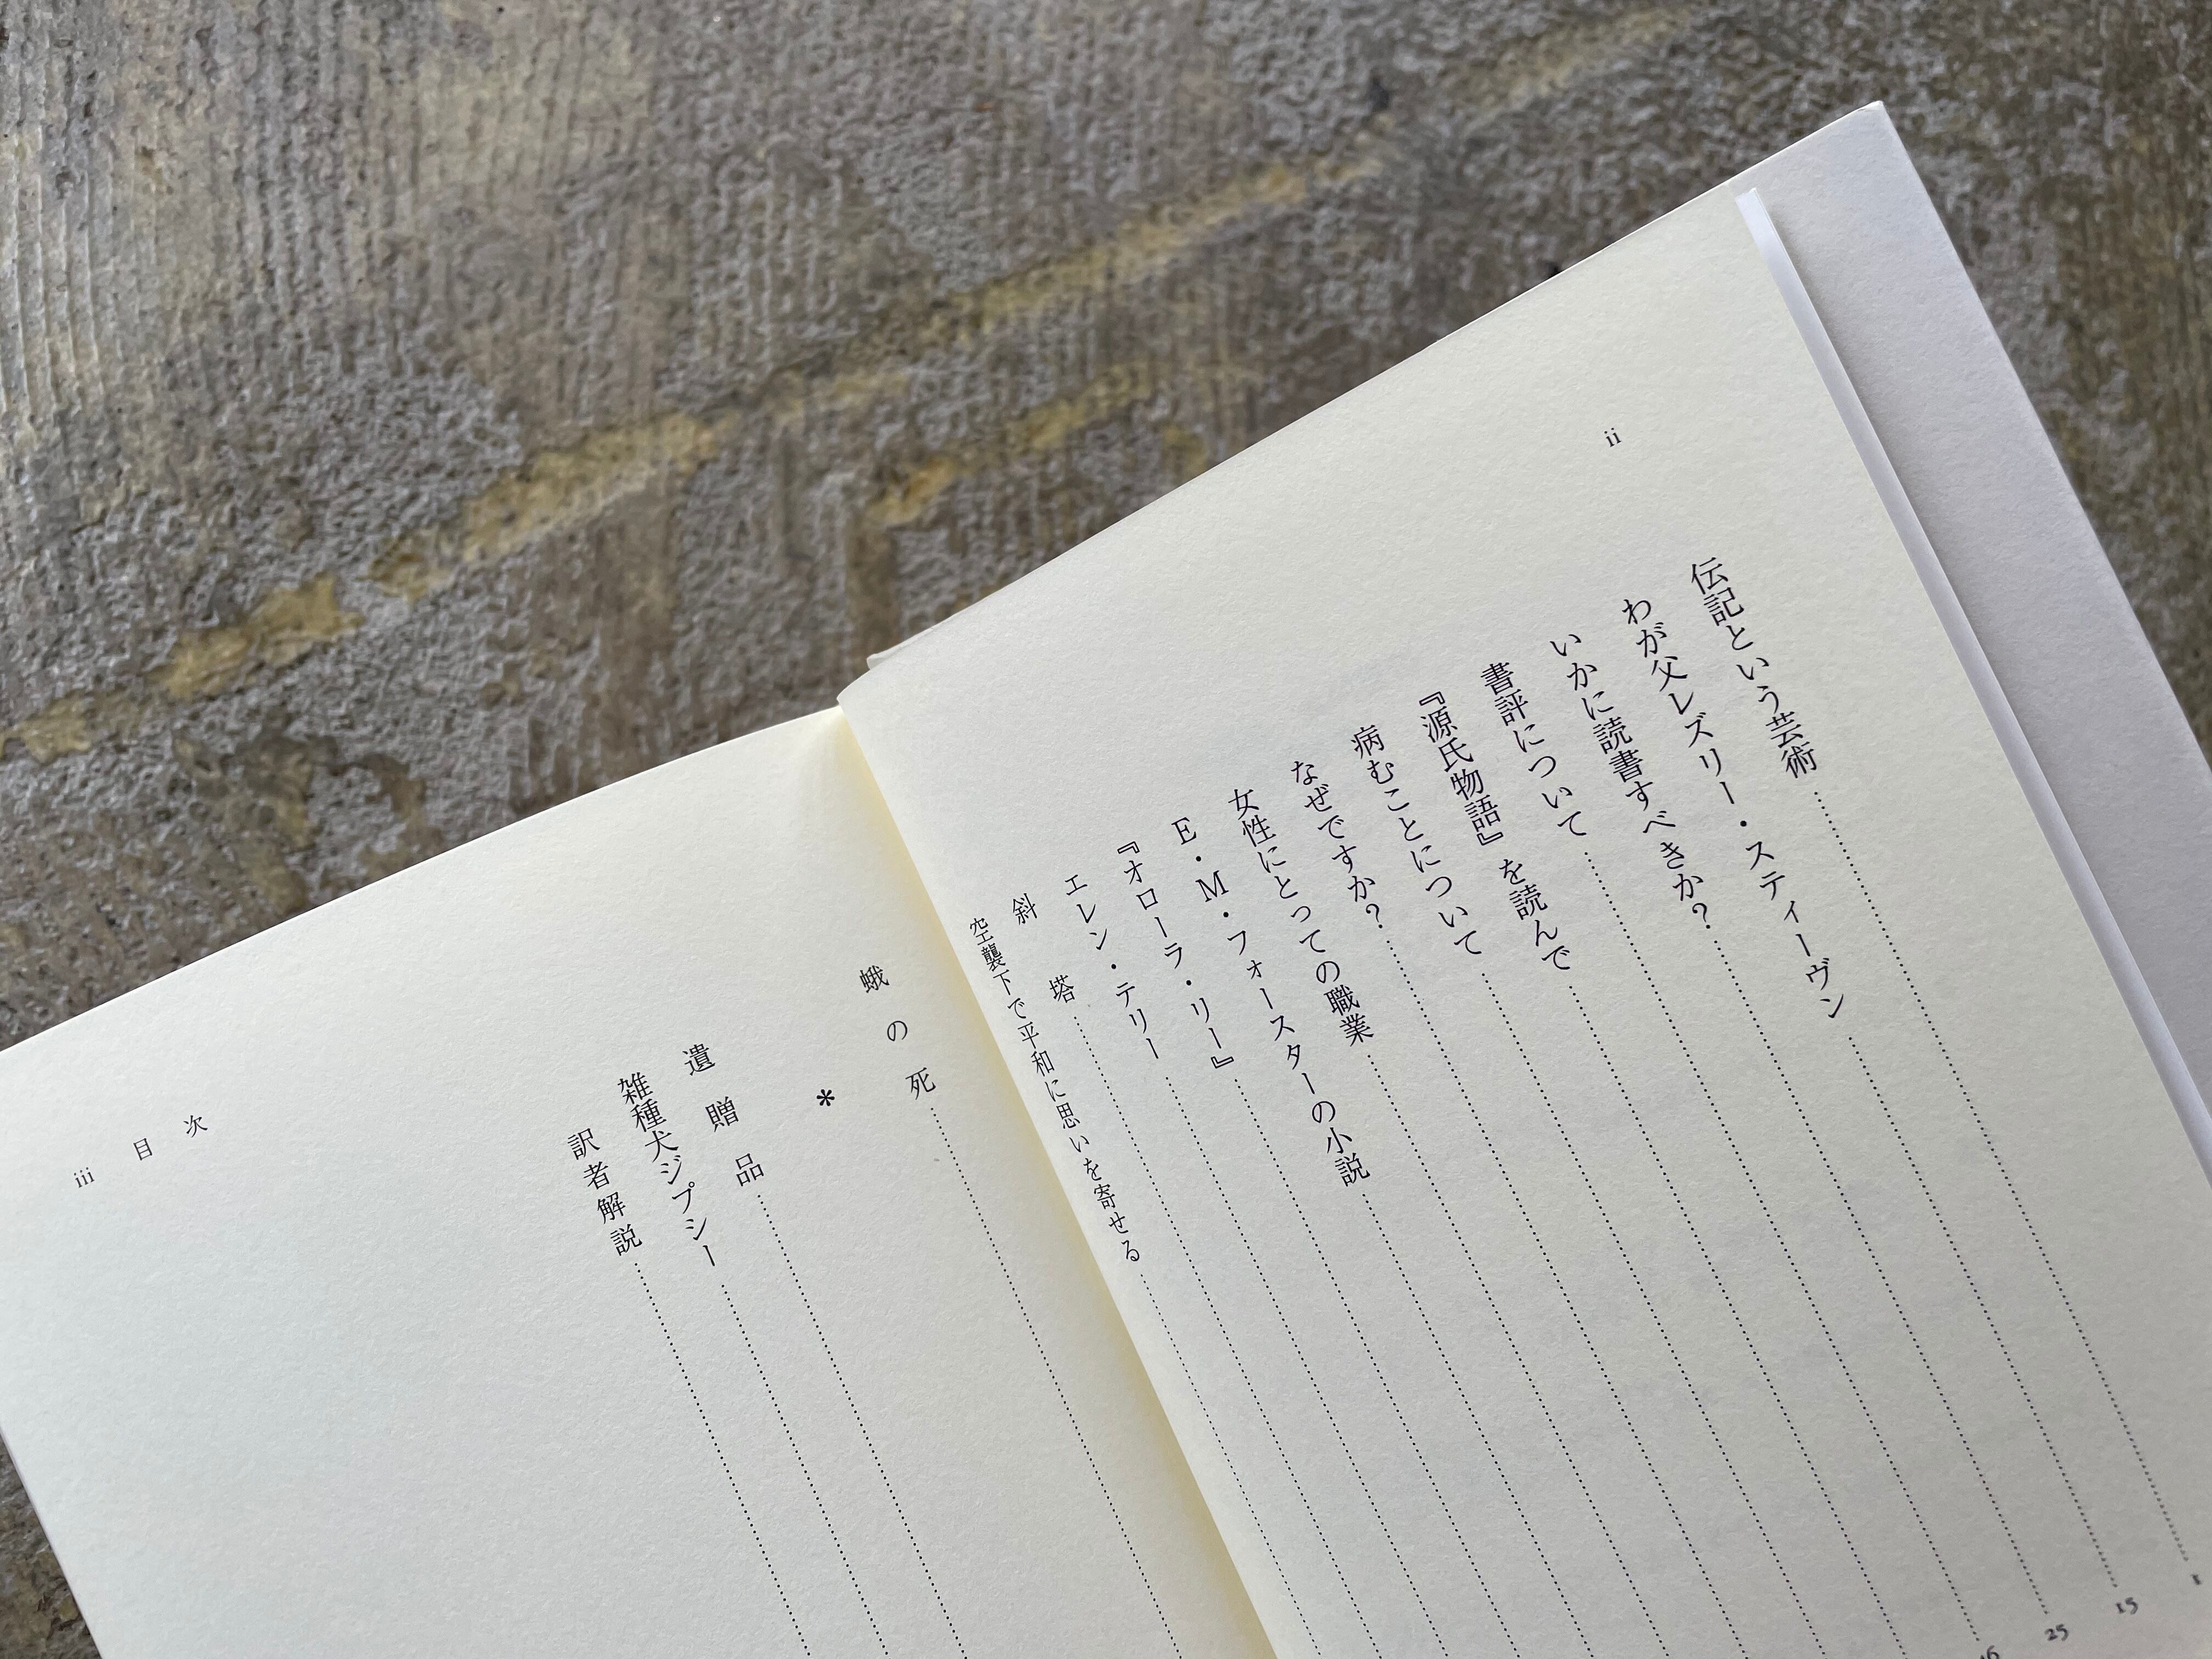 ii
伝記という芸術……1
わが父レズリー・スティーヴン……15
いかに読書すべきか?……25
書評について……
『源氏物語』を読んで……
病むことについて……
なぜですか?……
女性にとっての職業……
E・M・フォースターの小説……
『オローラ・リー』……
エレン・テリー……
斜塔……
空襲下で平和に思いを寄せる……
蛾の死……
*
遺贈品……
雑種犬ジプシー……
訳者解説……
目次
iii